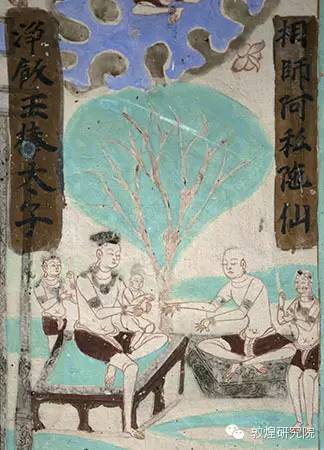 相師阿私陁仙
淨飯王捧太子
敦煌研究院